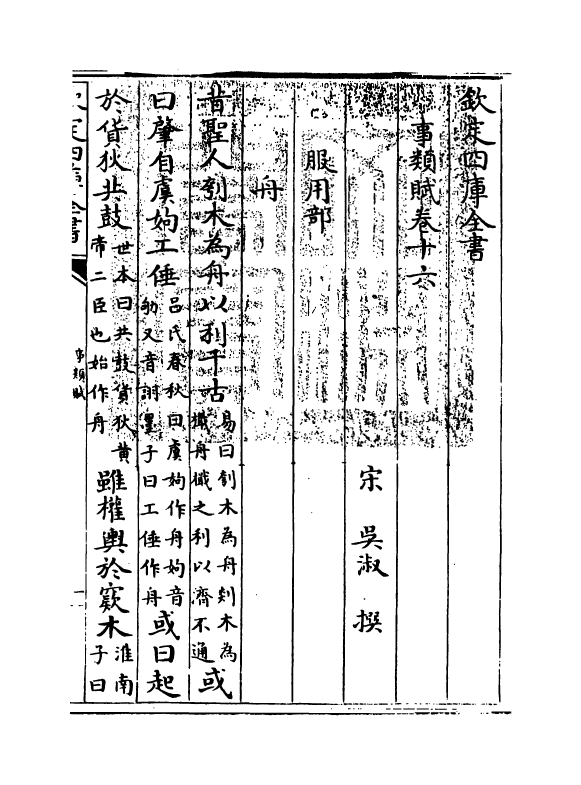 欽定四庫全書
事類賦卷十六
宋 吳淑 撰
服用部
舟
昔聖人刳木為舟以利千古易曰刳木為舟剡木為檝舟檝之利以濟不通或
曰肇自虞姁工倕呂氏春秋曰虞姁作舟姁音劬又音詡墨子曰工倕作舟或曰起
於貨狄共鼓世本曰共鼓貨狄黃帝二臣也始作舟雖權輿於窾木淮南子曰
欽定四庫全書
事類賦
一